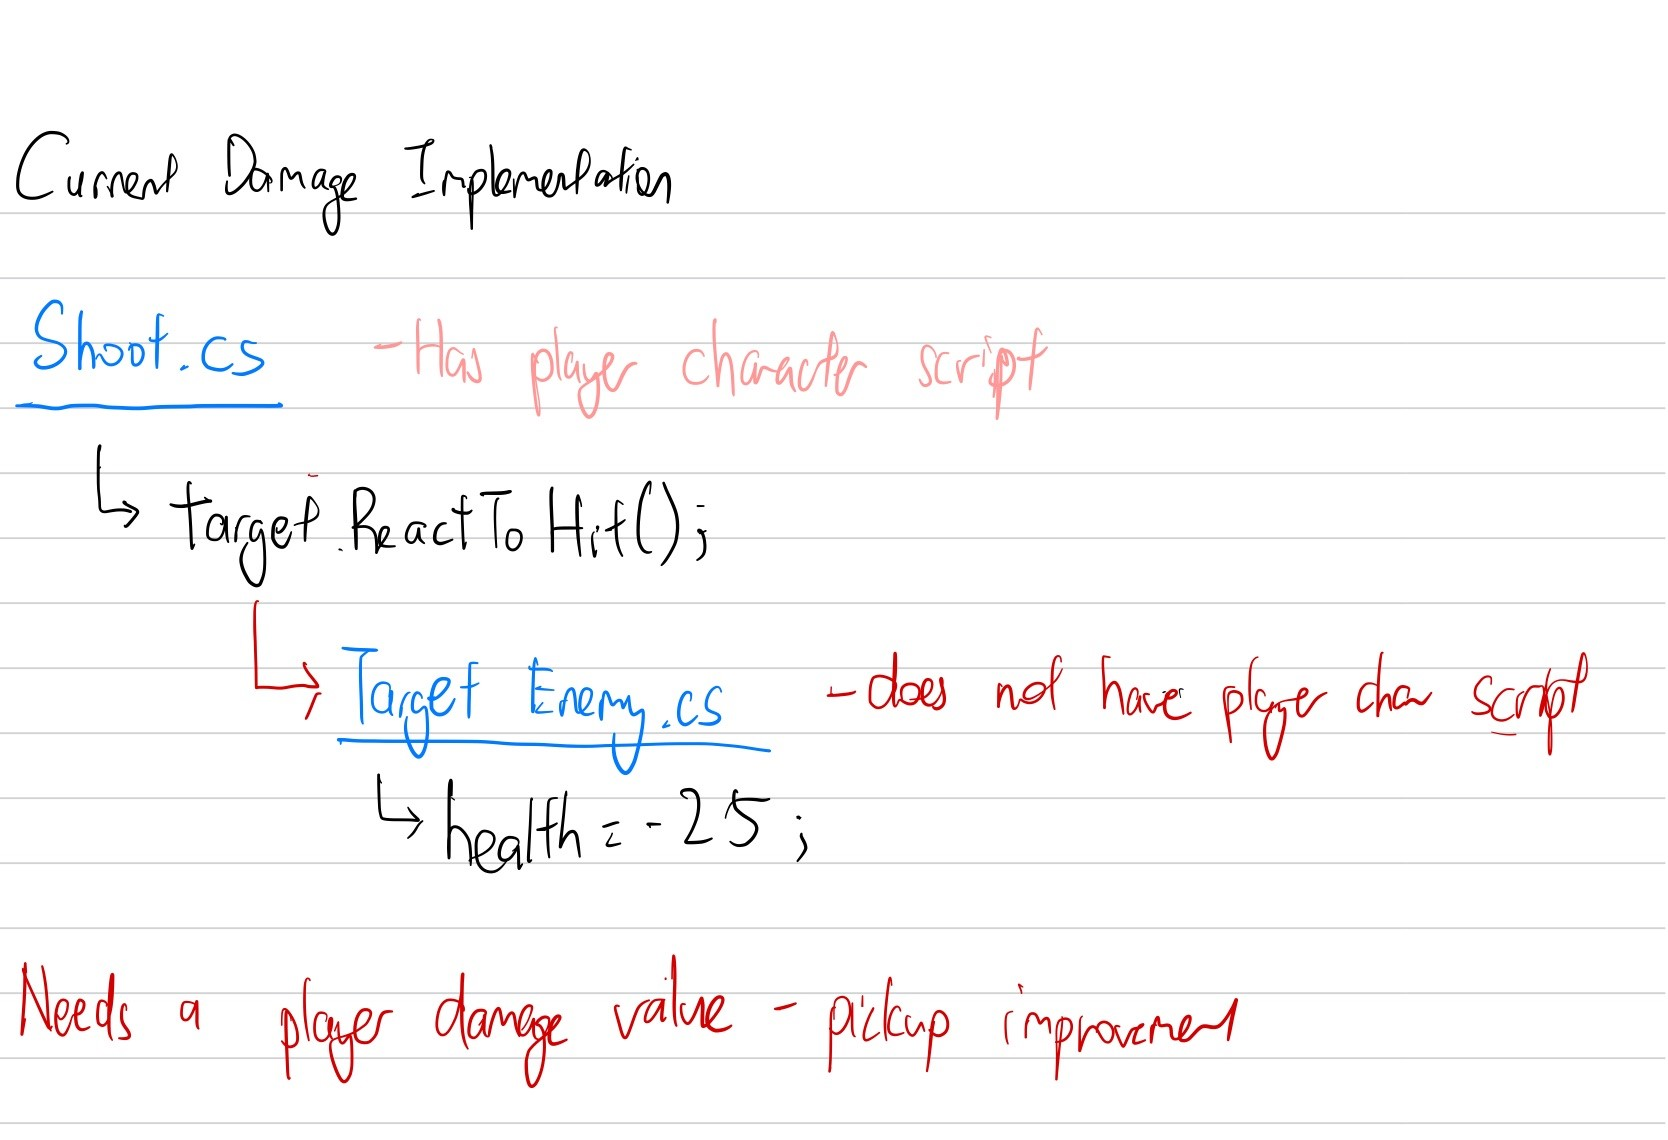 Current Damage Implementation
Shoot.cs - Has player character script
↳ target.ReactToHit();
↳ Target Enemy.cs - does not have player char script
↳ health = -25;
Needs a player damage value - pickup improvement